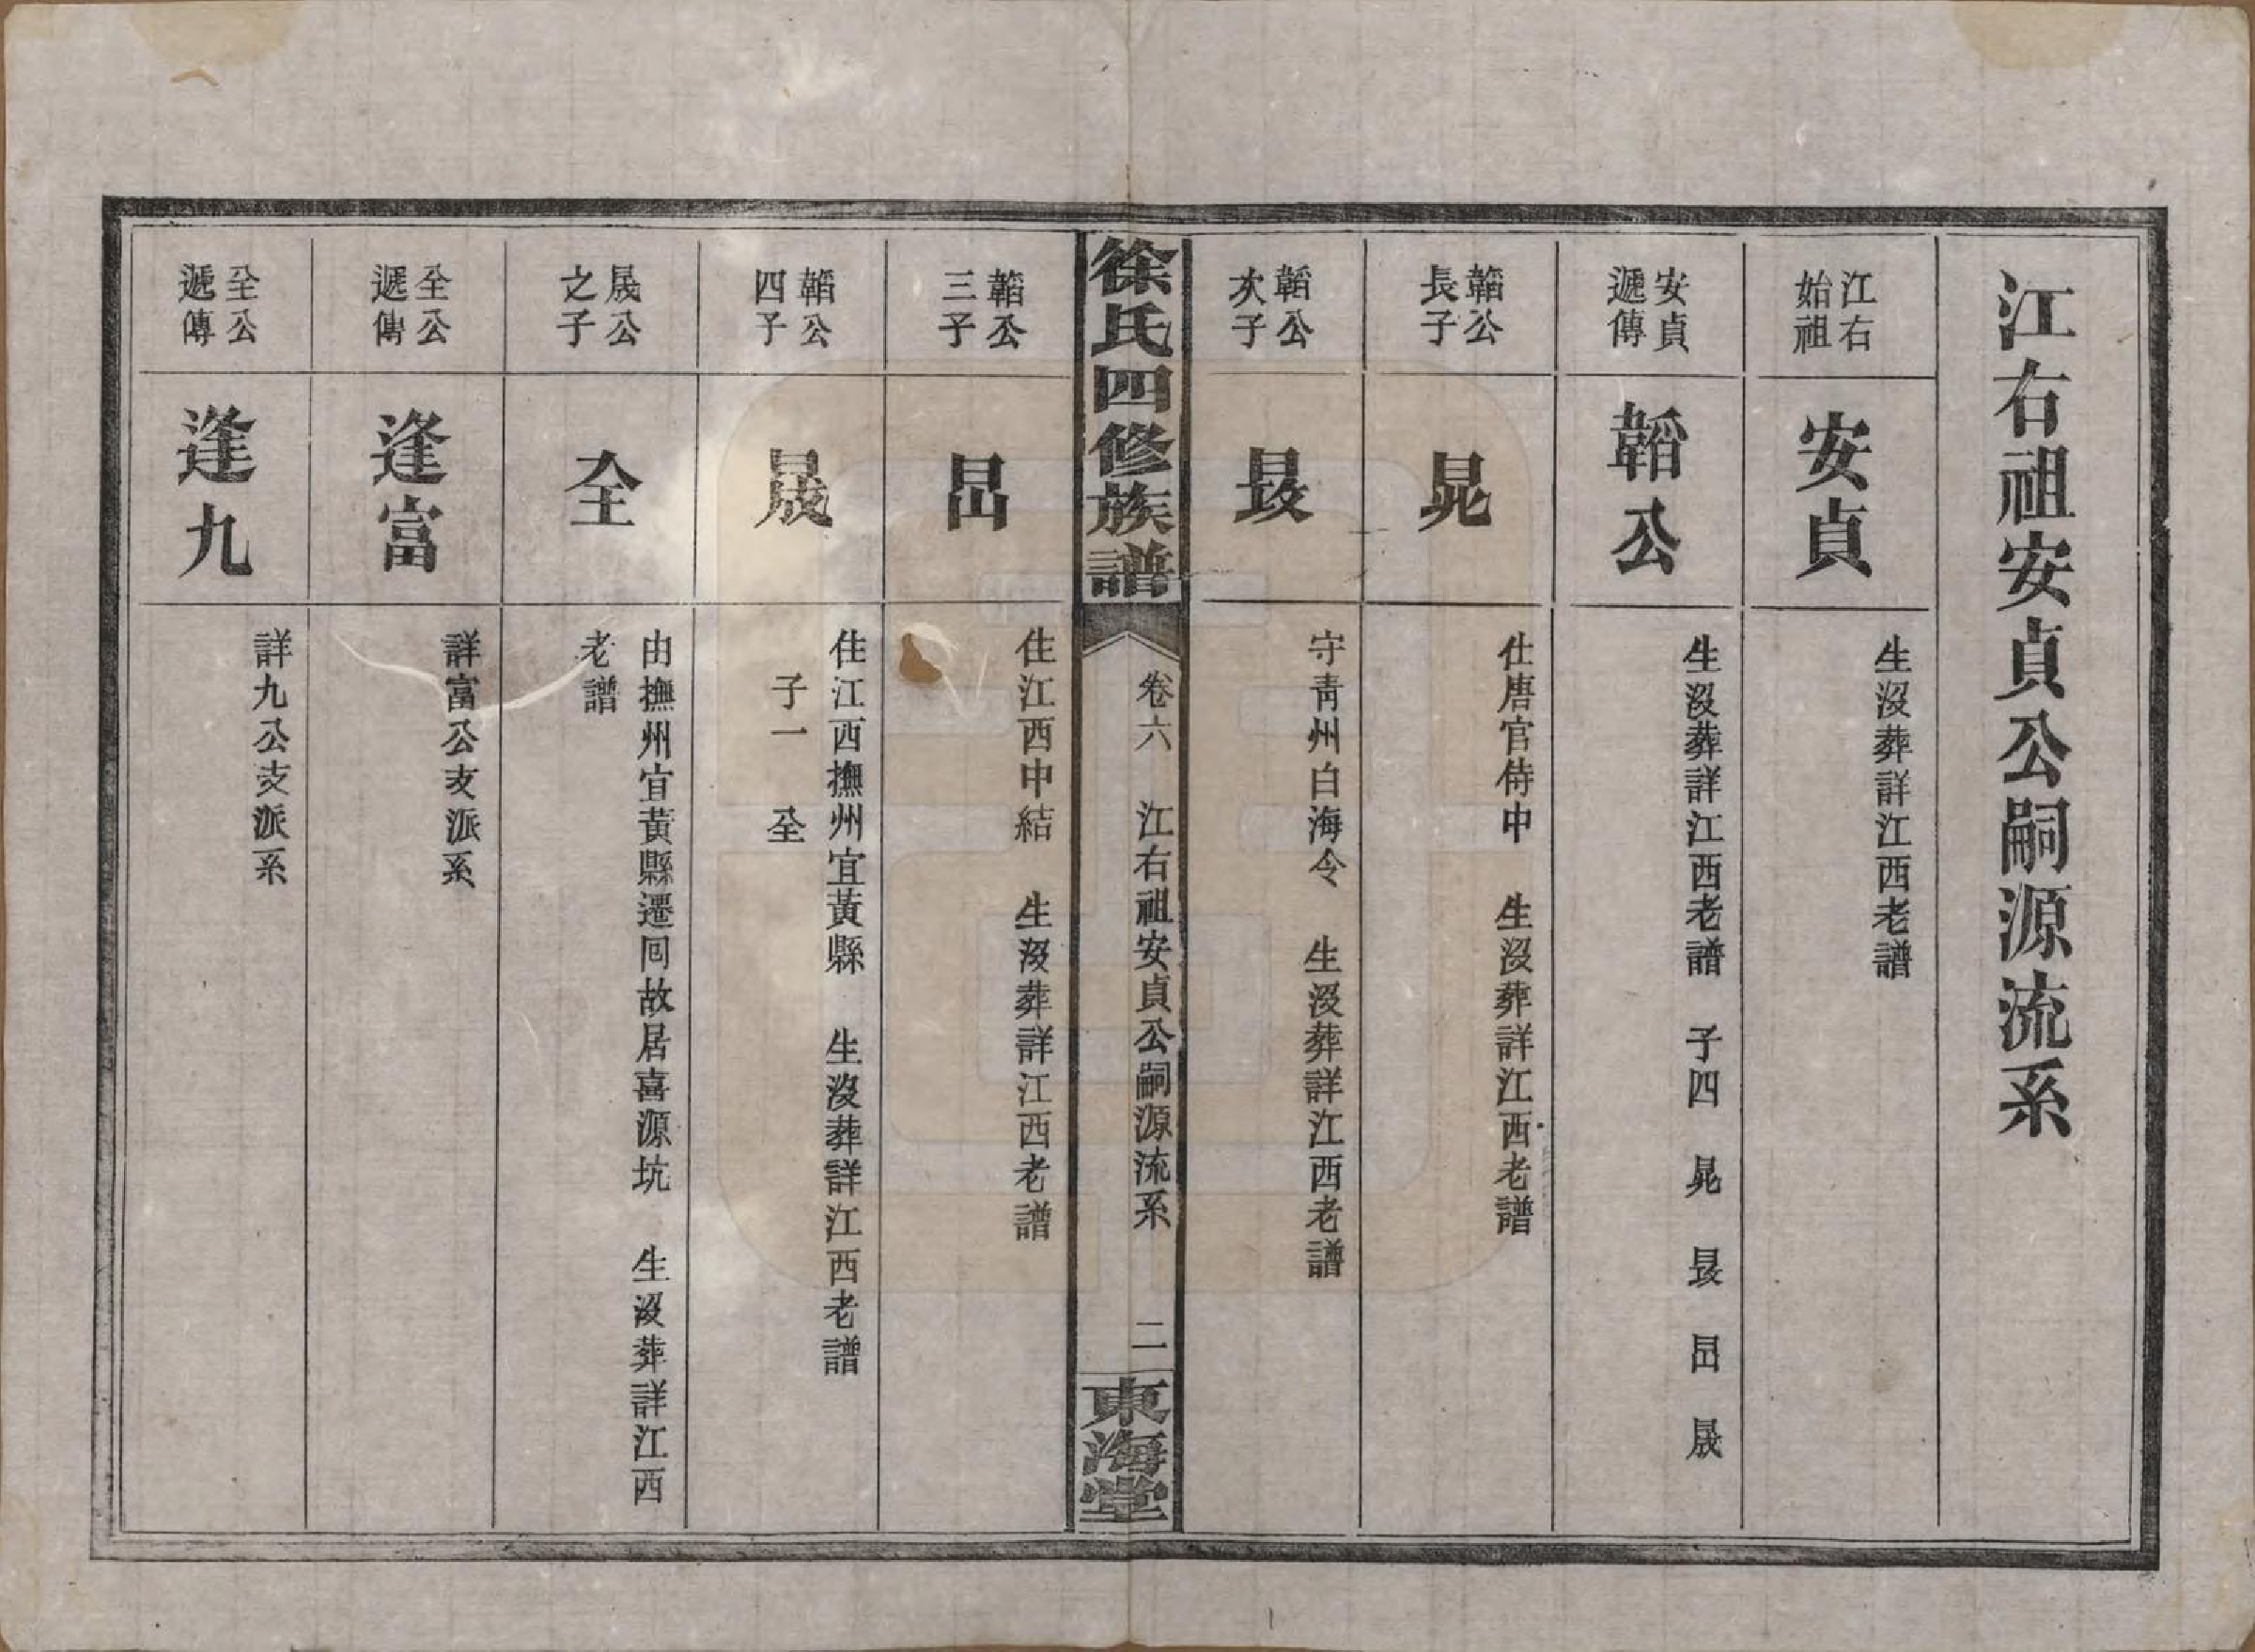 江右祖安貞公嗣源流系
江右
始祖
安貞
生沒葬詳江西老譜
安貞
遞傳
韜公
生沒葬詳江西老譜 子四 晃 㝡 昌 晟
韜公
長子
晃
仕唐官侍中 生沒葬詳江西老譜
韜公
次子
守青州白海令 生沒葬詳江西老譜
徐氏四修族譜
卷六 江右祖安貞公嗣源流系 二
東海堂
韜公
三子
住江西中結 生沒葬詳江西老譜
韜公
四子
晟
住江西撫州宜黃縣 生沒葬詳江西老譜
子一 全
晟公
之子
全
由撫州宜黃縣遷回故居喜源坑 生沒葬詳江西
老譜
全公
遞傳
逢富
詳富公支派系
全公
遞傳
逢九
詳九公支派系